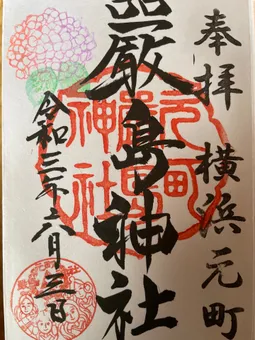 奉拝 横浜元町
嚴島神社
元町
嚴島
神社
令和三年六月三日